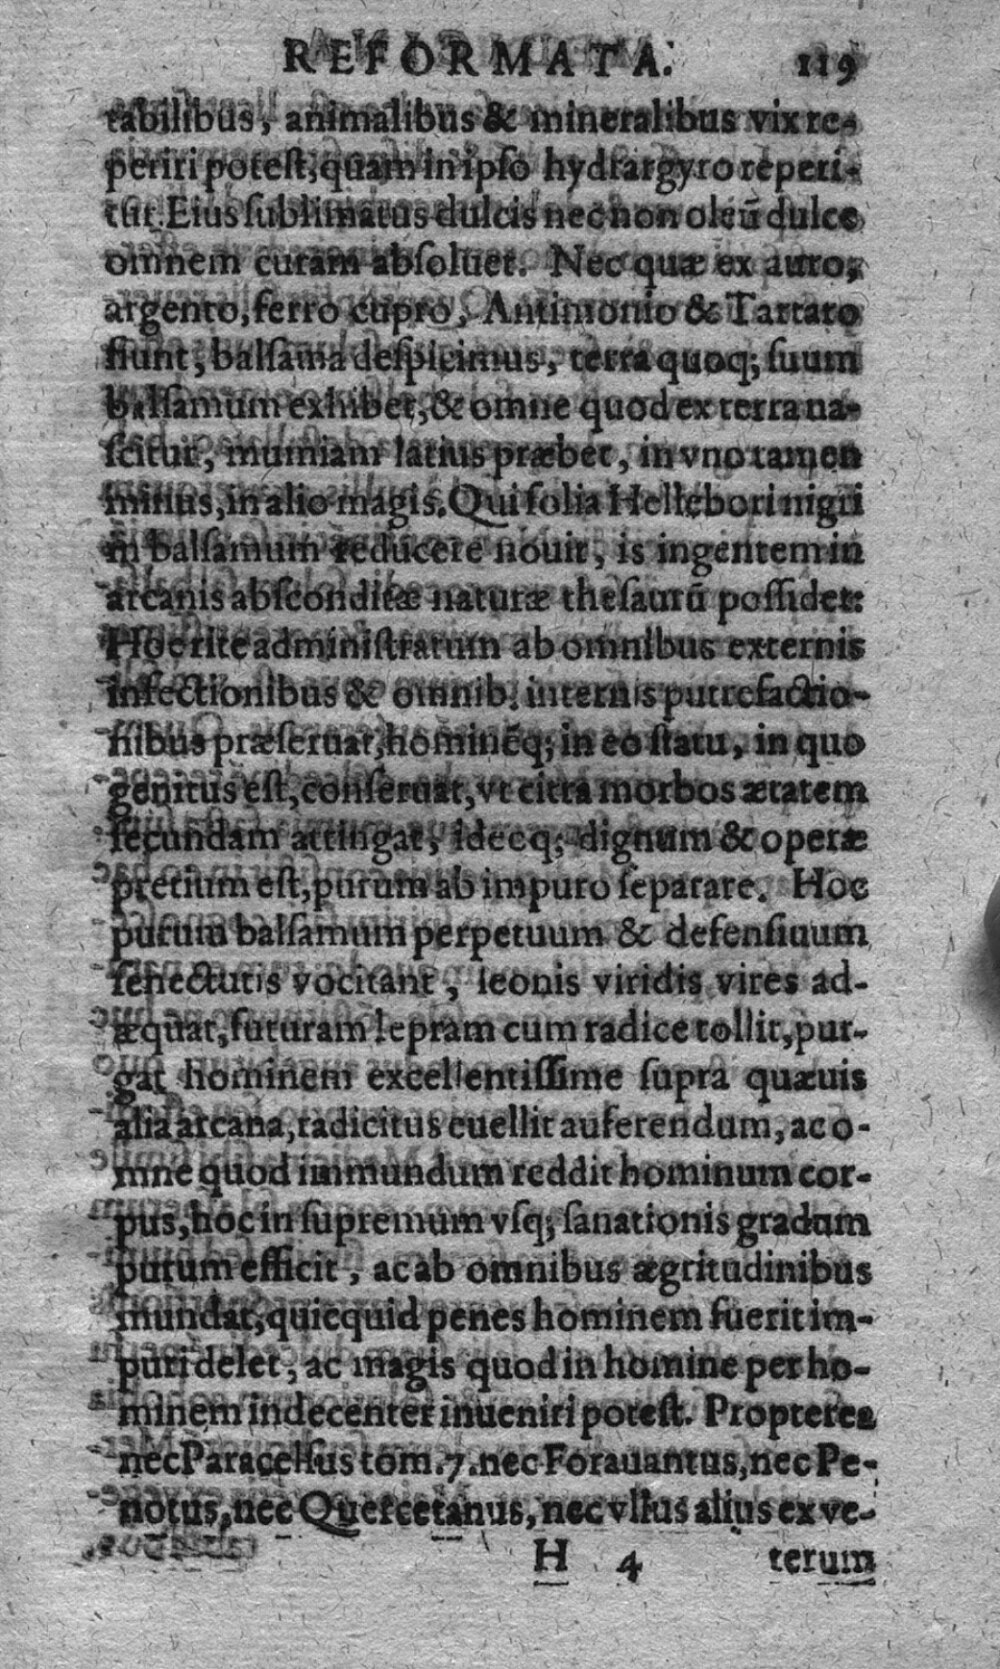 REFORMATA. 119
tabilibus, animalibus & mineralibus vix re-
periri potest, quam in ipso hydrargyro reperi-
tur. Eius sublimatus dulcis nec non oleū dulce
omnem curam absoluet. Nec quæ ex auro,
argento, ferro cupro, Antimonio & Tartaro
fiunt, balsama despicimus, terra quoq; suum
balsamum exhibet, & omne quod ex terra na-
scitur, mumiam latius præbet, in vno tamen
minus, in alio magis. Qui folia Hellebori nigri
in balsamum reducere nouit, is ingentem in
arcanis absconditæ naturæ thesaurū possidet:
Hoc rite administratum ab omnibus externis
infectionibus & omnib. internis putrefactio-
nibus præseruat, hominēq; in eo statu, in quo
genitus est, conseruat, vt citra morbos ætatem
secundam attingat, ideoq; dignum & operæ
pretium est, purum ab impuro separare. Hoc
purum balsamum perpetuum & defensiuum
senectutis vocitant, leonis viridis vires ad-
æquat, futuram lepram cum radice tollit, pur-
gat hominem excellentissime supra quæuis
alia arcana, radicitus euellit auferendum, ac o-
mne quod immundum reddit hominum cor-
pus, hoc in supremum vsq; sanationis gradum
purum efficit, ac ab omnibus ægritudinibus
mundat, quicquid penes hominem fuerit im-
puri delet, ac magis quod in homine per ho-
minem indecenter inueniri potest. Propterea
nec Paracelsus tom. 7. nec Forauantus, nec Pe-
notus, nec Quercetanus, nec vllus alius ex ve-
H 4 terum